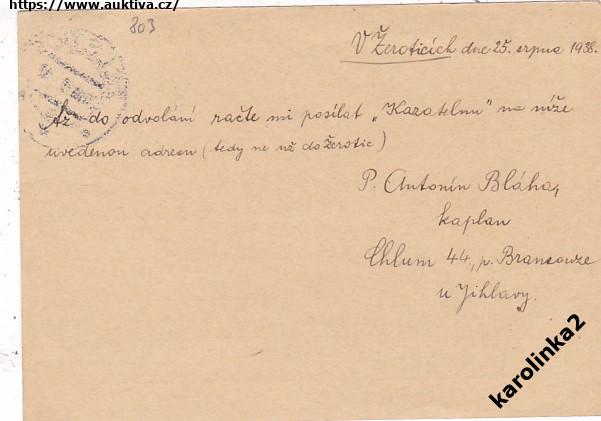 https://www.auktiva.cz/
803
V Žeroticích dne 25. srpna 1938.
Až do odvolání račte mi posílat „Kazatelnu" na níže
uvedenou adresu (tedy ne už do Žerotic)
P. Antonín Bláha,
kaplan
Chlum 44, p. Brancouze
u Jihlavy.
karolinka2